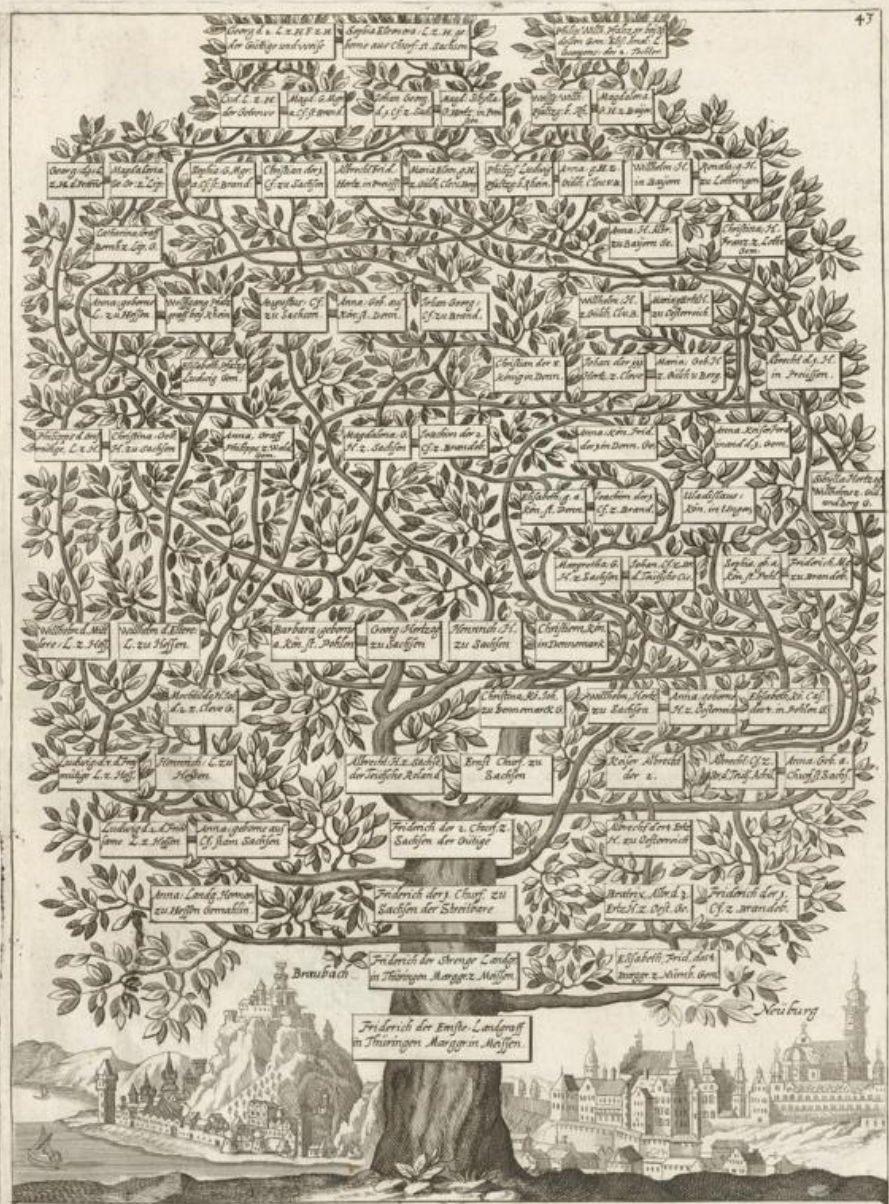 43
Georg d. 2. L. z. H. F. z. H.
der Gütige und weise
Sophia Eleonora: L. z. H. ge
borne aus Churf. st. Sachsen
Philip Wilh. Pfaltzgr.
der Getrewe
Magd. G. Mgr.
a. Cf. st. Brand.
Johan Georg
d. 1. Cf. z. Sach.
Magd. Sibylla
Wolfg. Wilh.
Pfaltzgr. b. Rh.
Magdalena
G. H. z. Bayern
Georg: d. 1. L.
Magdalena
Ge. Gr. z. Lip.
Sophia: G. Mgr.
a. Cf. st. Brand.
Christian der 1.
Cf. zu Sachsen
Albrecht Frid.
Hertz. in Preuss.
Maria Eleon. g. H.
z. Gülch. Clev. u. Berg
Philips Ludwig
Pfaltzg. b. Rhein.
Anna: g. H. z.
Gülch. Clev. u. B.
Willhelm: H.
in Bayern
Renata: g. H.
zu Lottringen
Catharina Graff
Bernh. z. Lip. G.
Anna: H. Albr.
zu Bayern Ge.
Christina: H.
Franz. z. Lothr.
Gem.
Anna: geborne
L. zu Hessen
Wolfgang Pfaltz
graff beij Rhein
Augustus: Cf.
zu Sachsen.
Anna: Geb. aus
Kön. st. Denn.
Johan Georg:
Cf. zu Brand.
Willhelm: H.
z. Gülch. Clev. B.
zu Oesterreich
Elisabeth: Pfaltzg.
Ludwig Gem.
Christian der
König in Denn.
Johan der
Hertz. z. Cleve
Maria: Geb. H.
z. Gülch. v. Berg.
Albrecht d. 1. H.
in Preussen.
Philipps d. Gros
L. z. H.
Christina: Geb.
H. zu Sachsen
Anna, Graff
Philipps z. Wald.
Gem.
Magdalena: G.
H. z. Sachsen
Joachim der 2.
Cf. z. Brandeb.
Anna: Kön. Frid.
der 1. in Denn. Ge.
Anna: Keiser Ferd
inand d. 1. Gem.
Sibylla Hertzog
Willhelms z. Gül.
und Berg G.
Elisabeth: g. a.
Kön. st. Denn.
Joachim der 1.
Cf. z. Brand.
Uladislaus:
Kön. in Ungern
Margretha G.
H. z. Sachsen
Johan: Cf. z. Br.
d. Teutsche Cic.
Sophia: gb. a.
Kön. st. Pohl.
Friderich: M.
zu Brandeb.
Willhelm d. Mitt
lere: L. z. Hess.
Willhelm d. Eltere:
L. zu Hessen.
Barbara: geborne
a. Kön. st. Pohlen
Georg: Hertzog
zu Sachsen
Hennrich: H.
zu Sachsen
Christiern Kön.
in Dennemarck
Mechtild: H. Joh.
d. 2. z. Cleve G.
Christina: Kö. Joh.
zu Dennemarck G.
Willhelm: Hertz.
zu Sachsen
Anna: geborne
H. z. Oesterreich
Elisabeth: Kö. Cas.
des 4. in Pohlen G.
Ludwig d. 2. d. Frey
mütige L. z. Hess.
Hennrich: L. zu
Hessen
Albrecht: H. z. Sachse
der Teutsche Roland
Ernst Churf. zu
Sachsen
Keiser Albrecht
der 2.
Albrecht: Cf. z.
Br. d. Teuts. Achil.
Anna: Geb. a.
Churf. st. Sachs.
Ludwig d. 1. d. Frid
same L. z. Hessen
Anna: geborne aus
Cf. stam Sachsen
Friderich der 2. Churf. z.
Sachsen der Gütige
Albrecht der 4. Ertz
H. zu Oesterreich
Anna: Landg. Herman
zu Hessen Gemahlin
Friderich der 1. Churf. zu
Sachsen der Streitbare
Beatrix, Albr. d. 3.
Ertz H. z. Oest. Ge.
Friderich der 1.
Cf. z. Brandeb.
Friderich der Strenge Landgr.
in Thüringen Marggr. z. Meissen
Elisabeth, Frid. des 4.
Burggr. z. Nürnb. Gem.
Braubach
Neuburg
Friderich der Ernste: Landgraff
in Thüringen Marggr. in Meissen.